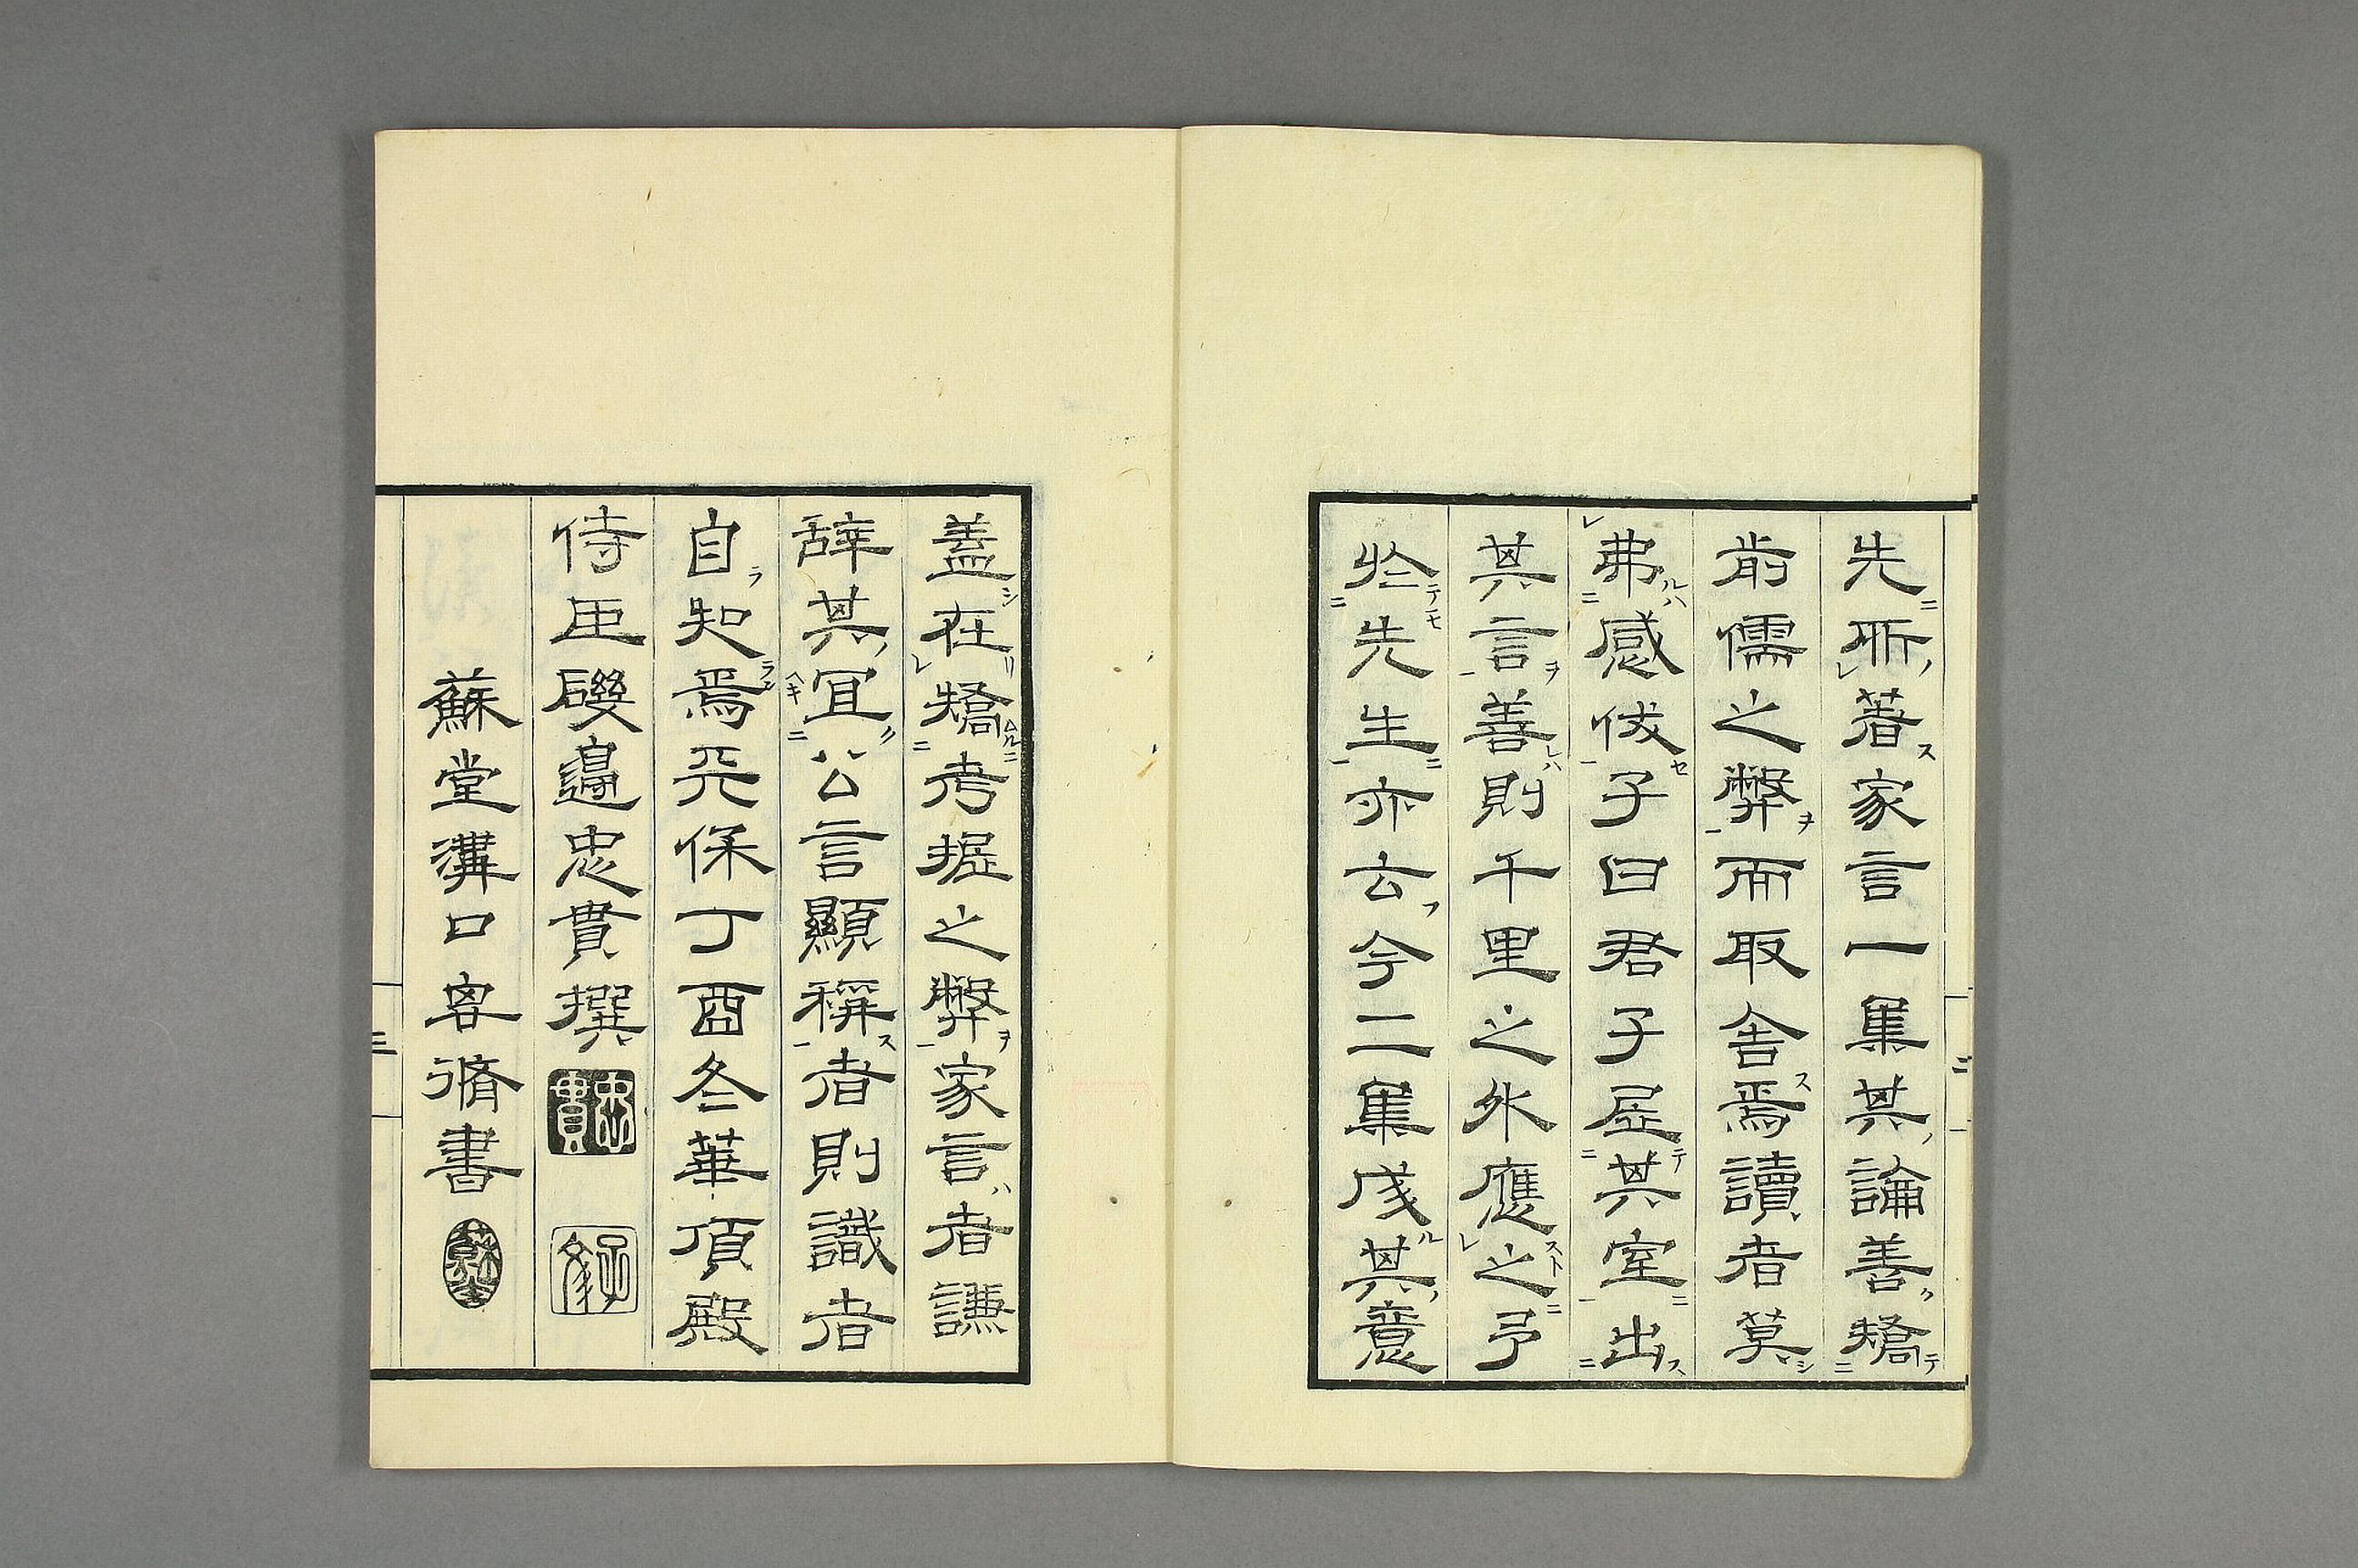 先所著家言一集其論善矯
前儒之弊而取舍焉讀者莫
弗感伏子曰君子居其室出
其言善則千里之外應之予
於先生亦云今二集成其意
蓋在矯考據之弊家言者謙
辭其宜公言顯稱者則識者
自知焉天保丁酉冬華頂殿
侍臣磯邉忠貫撰
忠貫
蘇堂溝口客脩書
三
三